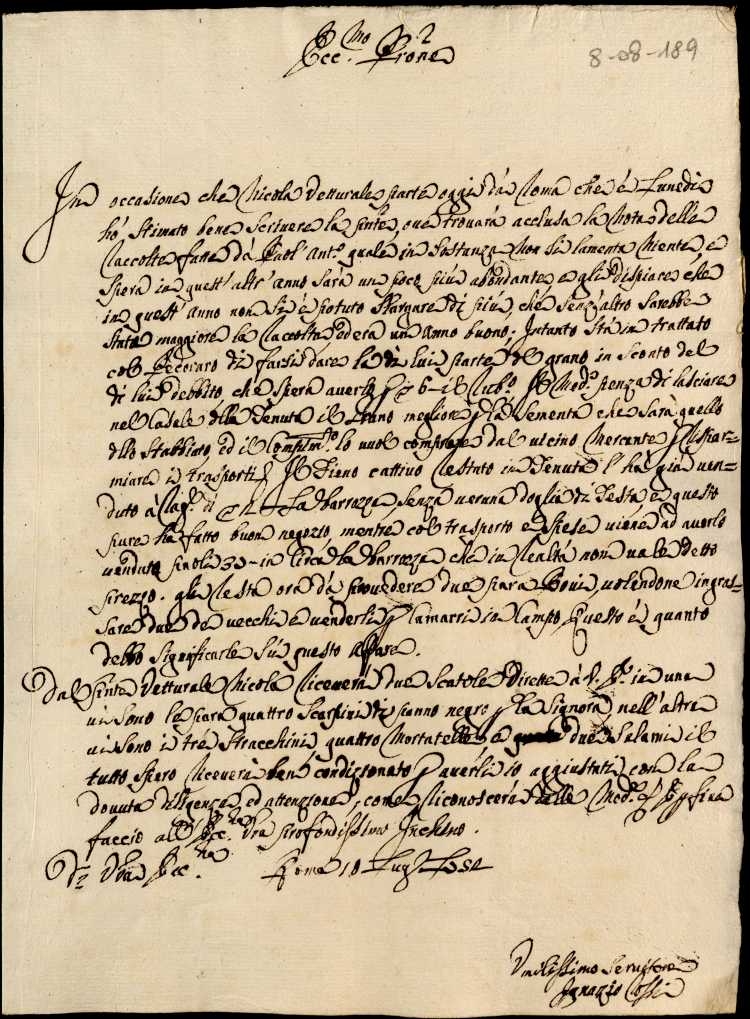 Ecc.mo Prone
8-08-189
In occasione che Nicola Vetturale parte oggi dà Roma che è Lunedì
hò stimato bene scrivere la pnte, ove trovarà acclusa la Nota delle
Raccolte fatte dà Paol' Ant.o quale in sostanza non si lamenta niente, e
spera in quest' altr' anno sarà un poco più abondante, e gli dispiace che
in quest' anno non si è potuto slargare di più, che senz'altro sarebbe
stata maggiore la raccolta, ed era un anno buono. Intanto stà in trattato
col Pecoraro di farsi dare la di lui parte del grano in sconto del
di lui debbito, che spera averlo p 6 il Rub.o Il Med.o pensa di lasciare
nel Casale della Tenuta il Grano megliore p la sementa che sarà quello
dllo stabbiato, ed il lo vuol comprare dal vicino Mercante p rispar-
miare i trasporti. Il Fieno cattivo restato in Tenuta l' hà già ven-
duto à rag.e di La Barrozza senza veruna doglia di Testa e questo
pure hà fatto buon negozio, mentre col trasporto e spese viene ad averlo
venduto paoli 35 in circa la barrozza che in realtà non vale detto
prezzo. gli resta ora dà provedere due para Bovi, volendone ingras-
sare due de vecchi e venderli p lamarri in Campo, Questo è quanto
debbo significarle sù questo affare.
Dal pnte Vetturale Nicola riceverà due Scatole dirette à V. E. in una
vi sono le para quattro Scarpini di panno negro p la Signora, nell' altra
vi sono i tré Stracchini, quattro Mortatelle e due Salami il
tutto spero riceverà ben condizionato p averli io aggiustati con la
dovuta diligenza, ed attenzione, come riconoscerà dalle Med.e e p fine
faccio all' Ecc.za Vra profondissimo Inchino.
D. Vra Ecc.za Roma 10 Lug.o
Umilissimo Servitore
Ignazio Rossi